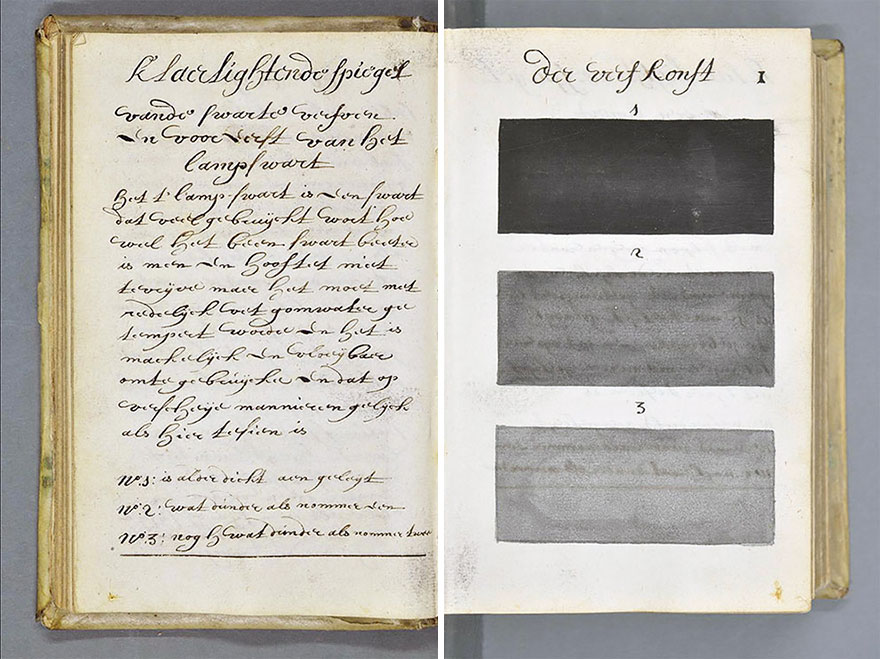 klaer lightende spiegel
vande swarte verfven.
En voor Eerst van het
lampswart
het lamp-swart is Een swart
dat veel gebruijckt wort hoe
wel het been swart beeter
is men En hooftet niet
te vrijve maer het moet met
redelijck vet gomwater ge
tempert worde En het is
mackelijck En vloeijbaer
omte gebruijcke En dat op
verscheije mannieren gelijck
als hier tesien is
No.1: is alder dicht aen geleijt
No.2: wat dúnder als nommer een
No.3: nog wat dúnder als nommer twee
der verfkonst 1
1
2
3